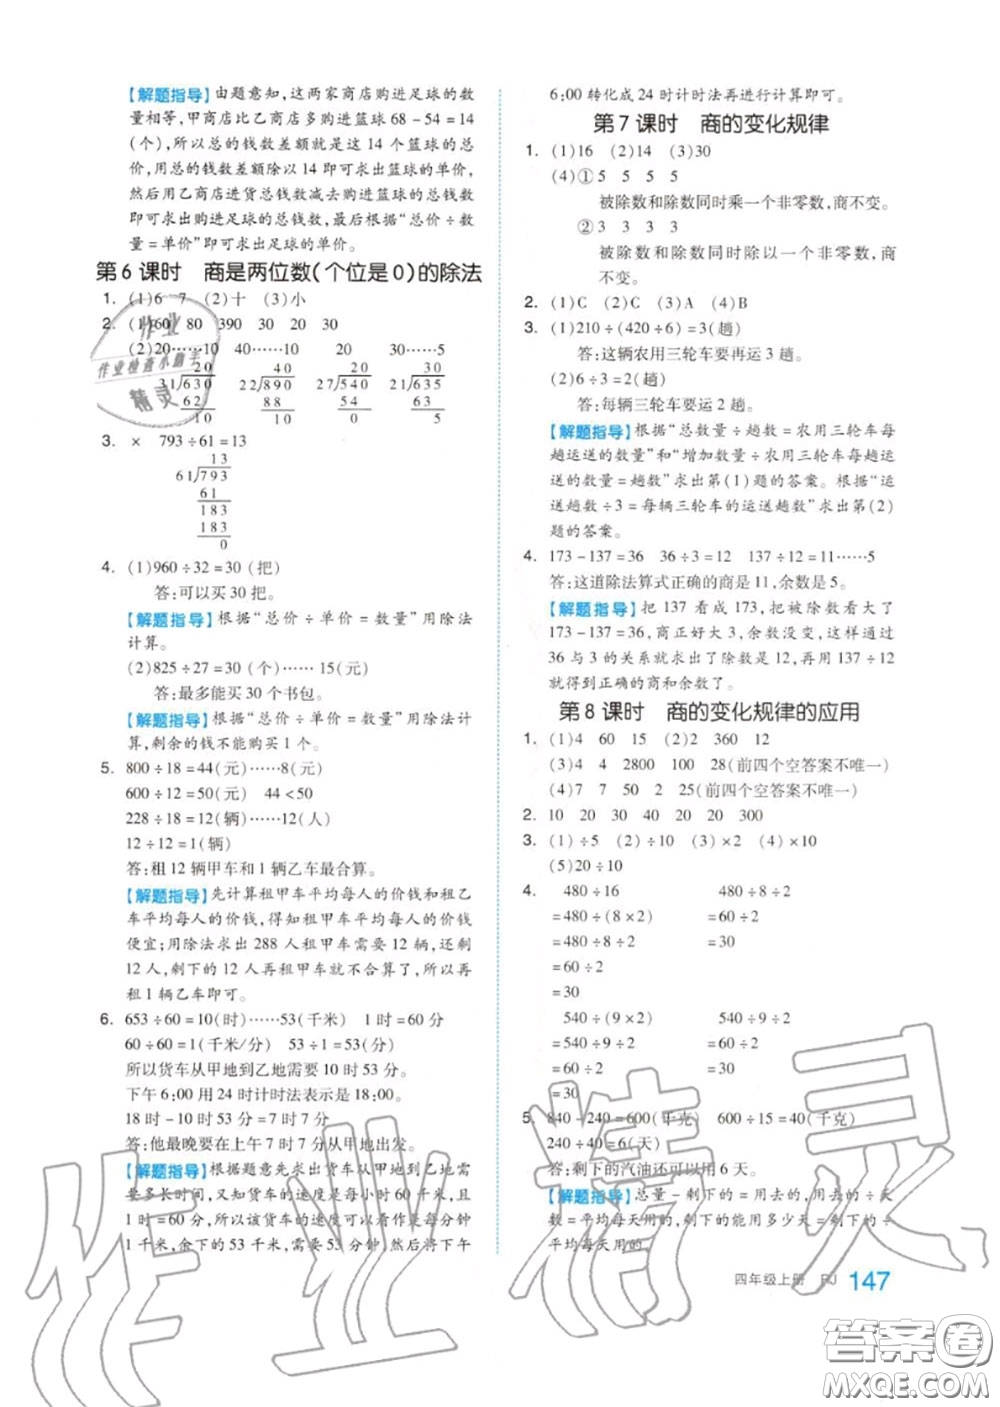 【解题指导】由题意知，这两家商店购进足球的数
量相等，甲商店比乙商店多购进篮球 68 - 54 = 14
(个)，所以总的钱数差额就是这 14 个篮球的总
价，用总的钱数差额除以 14 即可求出篮球的单价，
然后用乙商店进货总钱数减去购进篮球的总钱数
即可求出购进足球的总钱数，最后根据“总价÷数
量 = 单价”即可求出足球的单价。
第 6 课时 商是两位数(个位是 0)的除法
1. (1)6 7 (2)十 (3)小
2. (1)60 80 390 30 20 30
(2)20……10 40……10 20 30……5
20 40 20 30
31)630 22)890 27)540 14)425
62 88 54 42
10 10 0 5
3. × 793÷61=13
13
61)793
61
183
183
0
4. (1)960÷32=30(把)
答:可以买 30 把。
【解题指导】根据“总价÷单价=数量”用除法
计算。
(2)825÷27=30(个)……15(元)
答:最多能买 30 个书包。
【解题指导】根据“总价÷单价=数量”用除法计
算,剩余的钱不能购买 1 个。
5. 800÷18=44(元)……8(元)
600÷12=50(元) 44<50
228÷18=12(辆)……12(人)
12÷12=1(辆)
答:租 12 辆甲车和 1 辆乙车最合算。
【解题指导】先计算租甲车平均每人的价钱和租乙
车平均每人的价钱,得知租甲车平均每人的价钱
便宜;用除法求出 288 人租甲车需要 12 辆,还剩
12 人,剩下的 12 人再租甲车就不合算了,所以再
租 1 辆乙车即可。
6. 653÷60=10(时)……53(千米) 1时=60分
60÷60=1(千米/分) 53÷1=53(分)
所以货车从甲地到乙地要行 10 时 53 分。
下午 6:00 用 24 时计时法表示是 18:00。
18 时-10 时 53 分=7 时 7 分
答:他最晚要在上午 7 时 7 分从甲地出发。
【解题指导】根据题意先求出货车从甲地到乙地需
要多长时间,又知货车的速度是每小时 60 千米,且
1 时=60 分,所以该货车的速度可以看作是每分钟
1 千米,余下的 53 千米,需要 53 分钟,然后将下午
6:00 转化成 24 时计时法再进行计算即可。
第 7 课时 商的变化规律
1. (1)16 (2)14 (3)30
(4)① 5 5 5 5
被除数和除数同时乘一个非零数,商不变。
② 3 3 3 3
被除数和除数同时除以一个非零数,商
不变。
2. (1)C (2)C (3)A (4)B
3. (1)210÷(420÷6)=3(趟)
答:这辆农用三轮车要再运 3 趟。
(2)6÷3=2(趟)
答:每辆三轮车要运 2 趟。
【解题指导】根据“总数量÷趟数=农用三轮车每
趟运送的数量”和“增加数量÷农用三轮车每趟运
送的数量=趟数”求出第(1)题的答案。根据“运
送趟数÷3=每辆三轮车的运送趟数”求出第(2)
题的答案。
4. 173-137=36 36÷3=12 137÷12=11……5
答:这道除法算式正确的商是 11,余数是 5。
【解题指导】把 137 看成 173,把被除数看大了
173-137=36,商正好大 3,余数没变,这样通过
36 与 3 的关系就求出了除数是 12,再用 137÷12
就得到正确的商和余数了。
第 8 课时 商的变化规律的应用
1. (1)4 60 15 (2)2 360 12
(3)4 4 2800 100 28(前四个空答案不唯一)
(4)7 7 50 2 25(前四个空答案不唯一)
2. 10 20 30 40 20 20 300
3. (1)÷5 (2)÷10 (3)×2 (4)×10
(5)20÷10
4. 480÷16 480÷8÷2
=480÷(8×2) =60÷2
=480÷8÷2 =30
=60÷2
=30
540÷(9×2) 540÷9÷2
=540÷9÷2 =60÷2
=60÷2 =30
=30
5. 840-240=600(千克) 600÷15=40(千克)
240÷40=6(天)
答:剩下的汽油还可以用 6 天。
【解题指导】总量-剩下的=用去的,用去的÷天
数=平均每天用的,剩下的能用多少天=剩下的÷
平均每天用的。
四年级上册 RJ 147
作业
作业检查小助手
精灵
作业精灵
答案圈
MXQE.COM